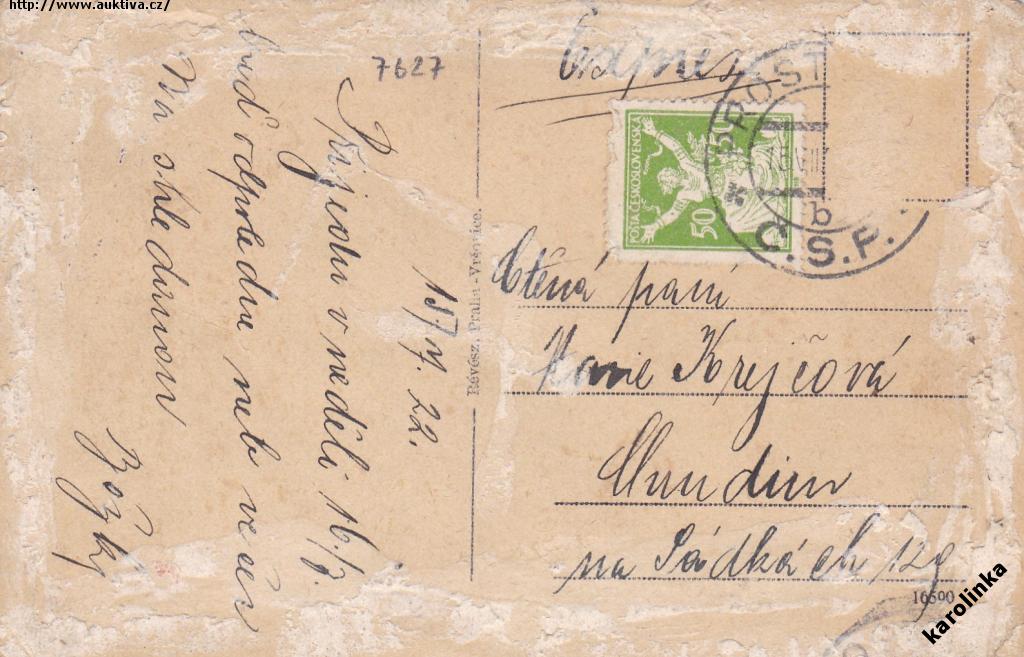 http://www.auktiva.cz/
7627
Expres
PROST
b
Č.S.P.
POŠTA ČESKOSLOVENSKÁ
50
50
15/7. 22.
Přijedu v neděli 16/7.
buď odpoledne neb večer
Na shledanou
Révész, Praha-Vršovice.
Ctěná paní
Marie Krejčová
na Sádkách 129
16500
karolinka